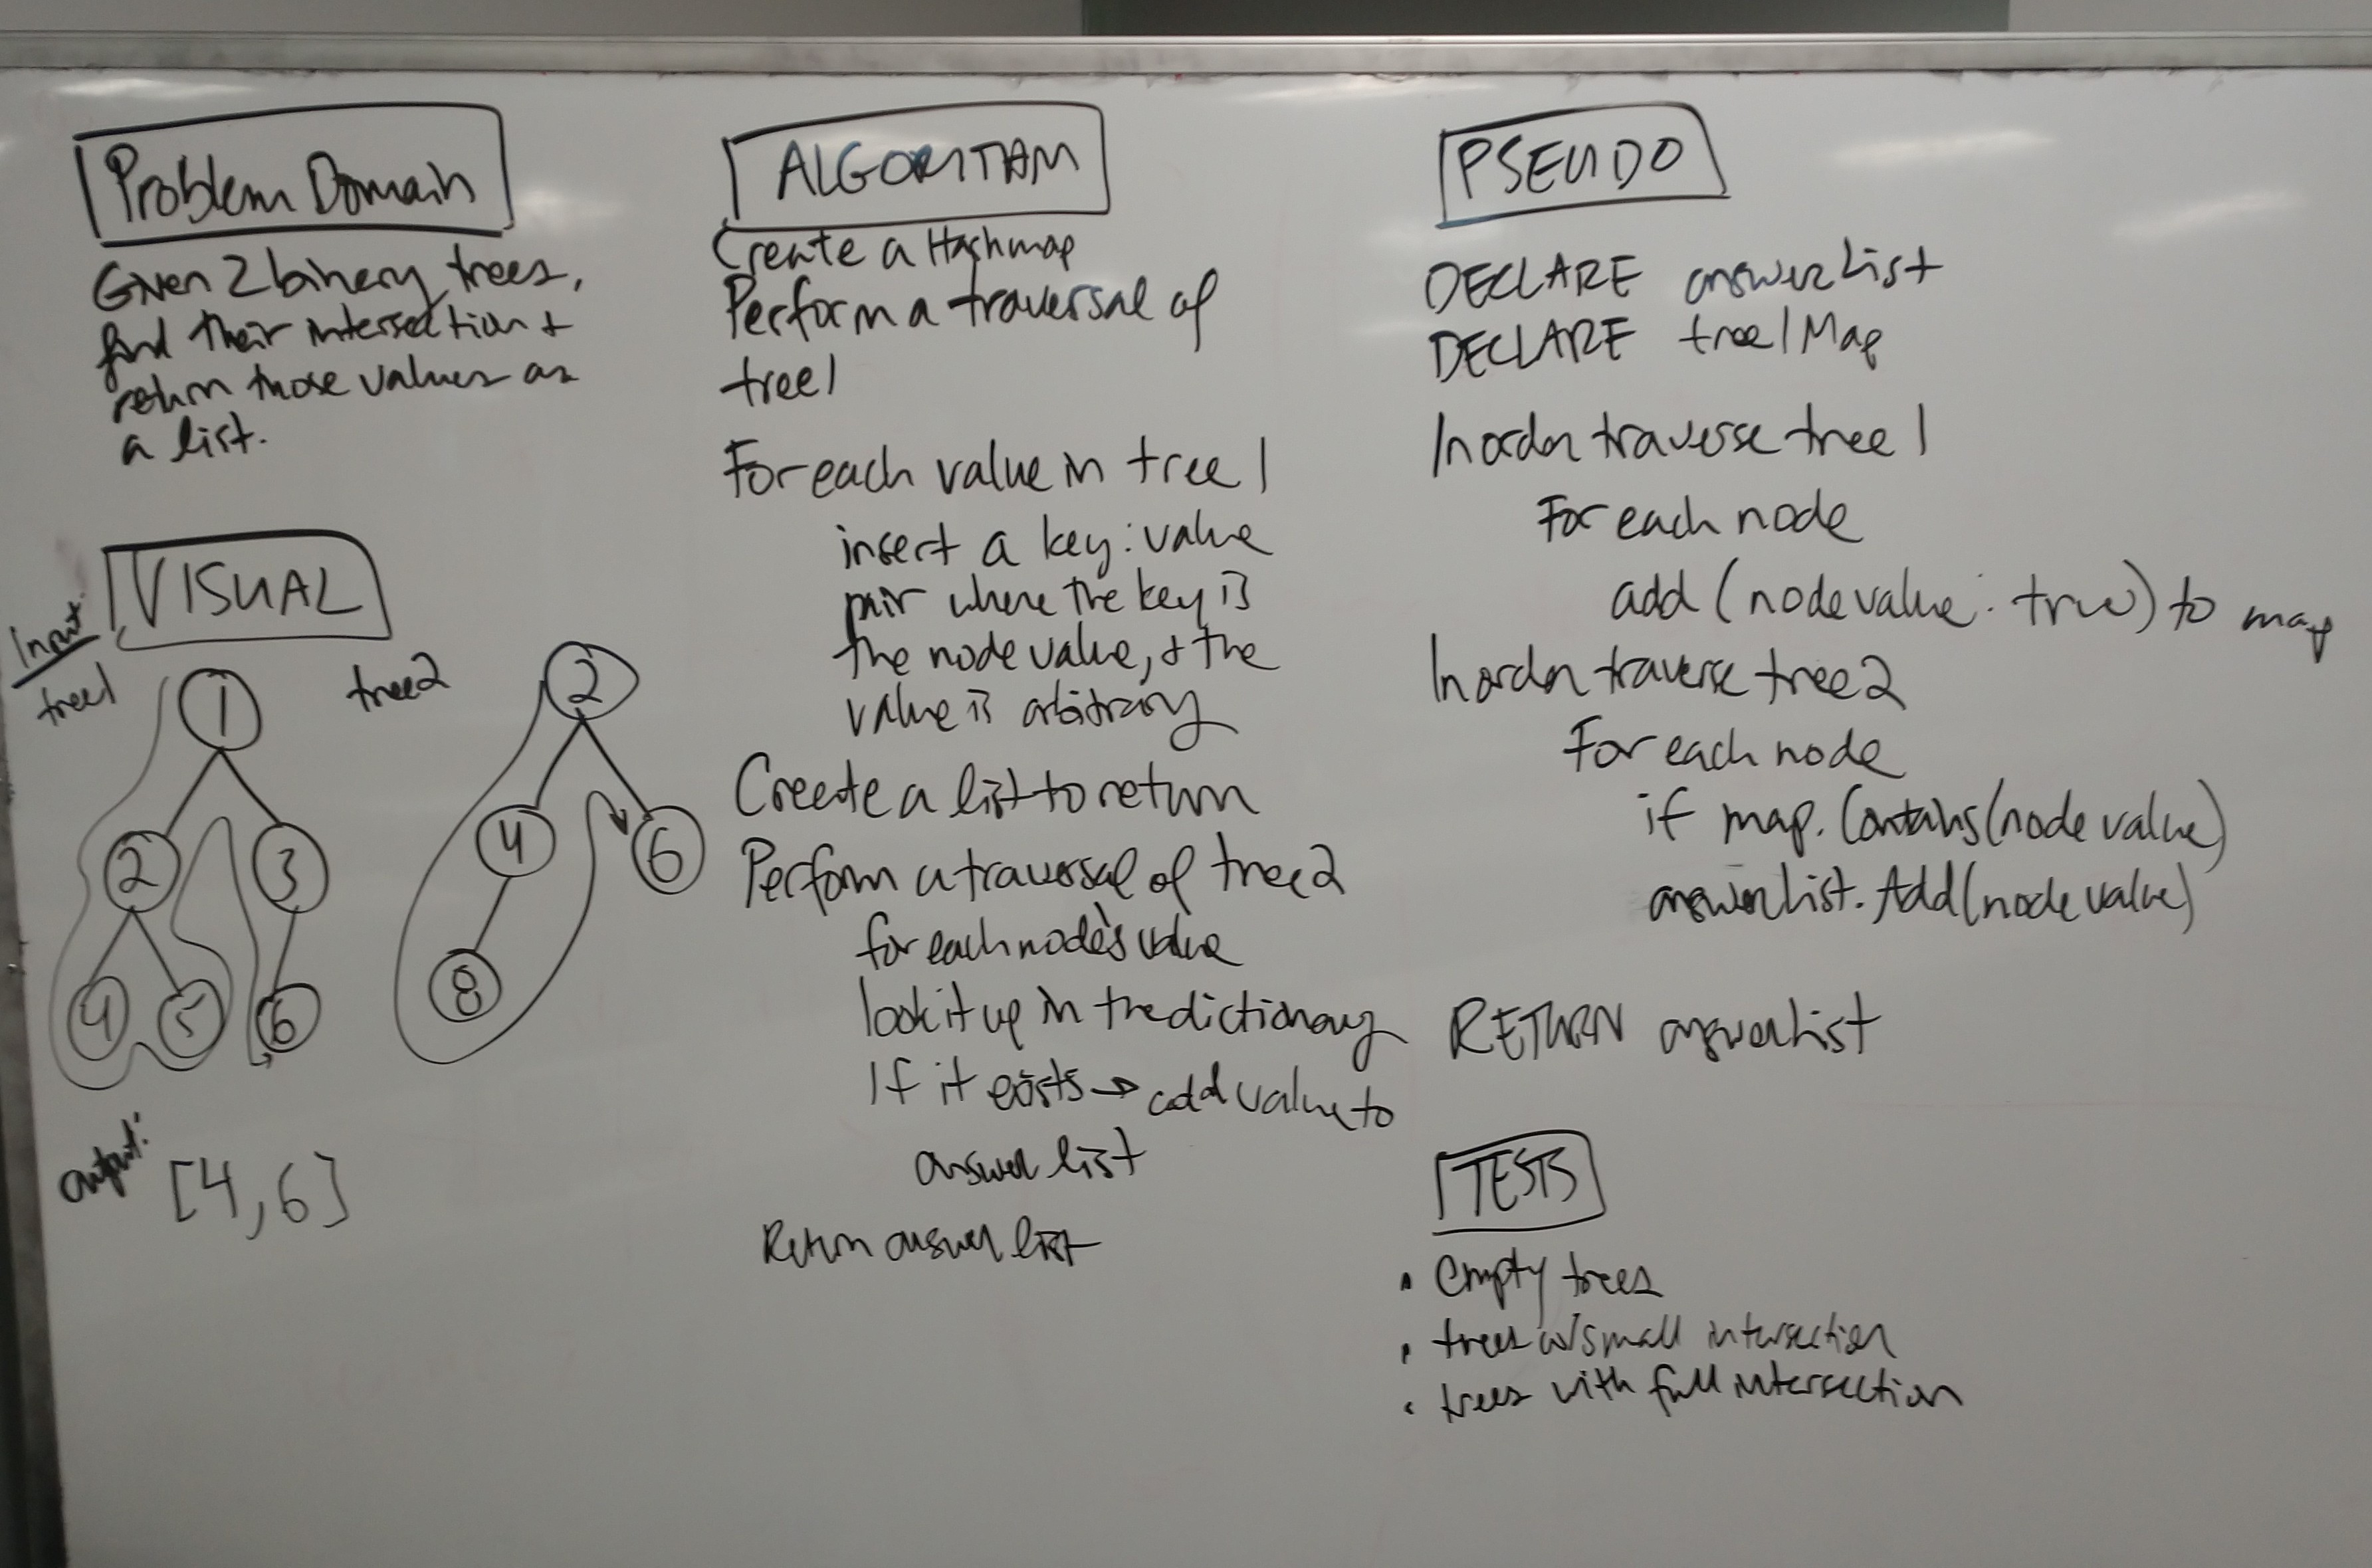 Problem Domain
Given 2 binary trees,
find their intersection +
return those values as
a list.
VISUAL
Input:
tree1
1
2
3
4
5
6
tree2
2
4
6
8
Output:
[4,6]
ALGORITHM
Create a Hashmap
Perform a traversal of
tree1
For each value in tree 1
insert a key:value
pair where the key is
the node value, + the
value is arbitrary
Create a list to return
Perform a traversal of tree2
for each node's value
look it up in the dictionary
If it exists → add value to
answer list
Return answer list
PSEUDO
DECLARE answerList
DECLARE tree1Map
Inorder traverse tree 1
For each node
add (node value : true) to map
Inorder traverse tree 2
For each node
if map.Contains(node value)
answerList.Add(node value)
RETURN answerList
TESTS
• empty trees
• trees w/small intersection
• trees with full intersection